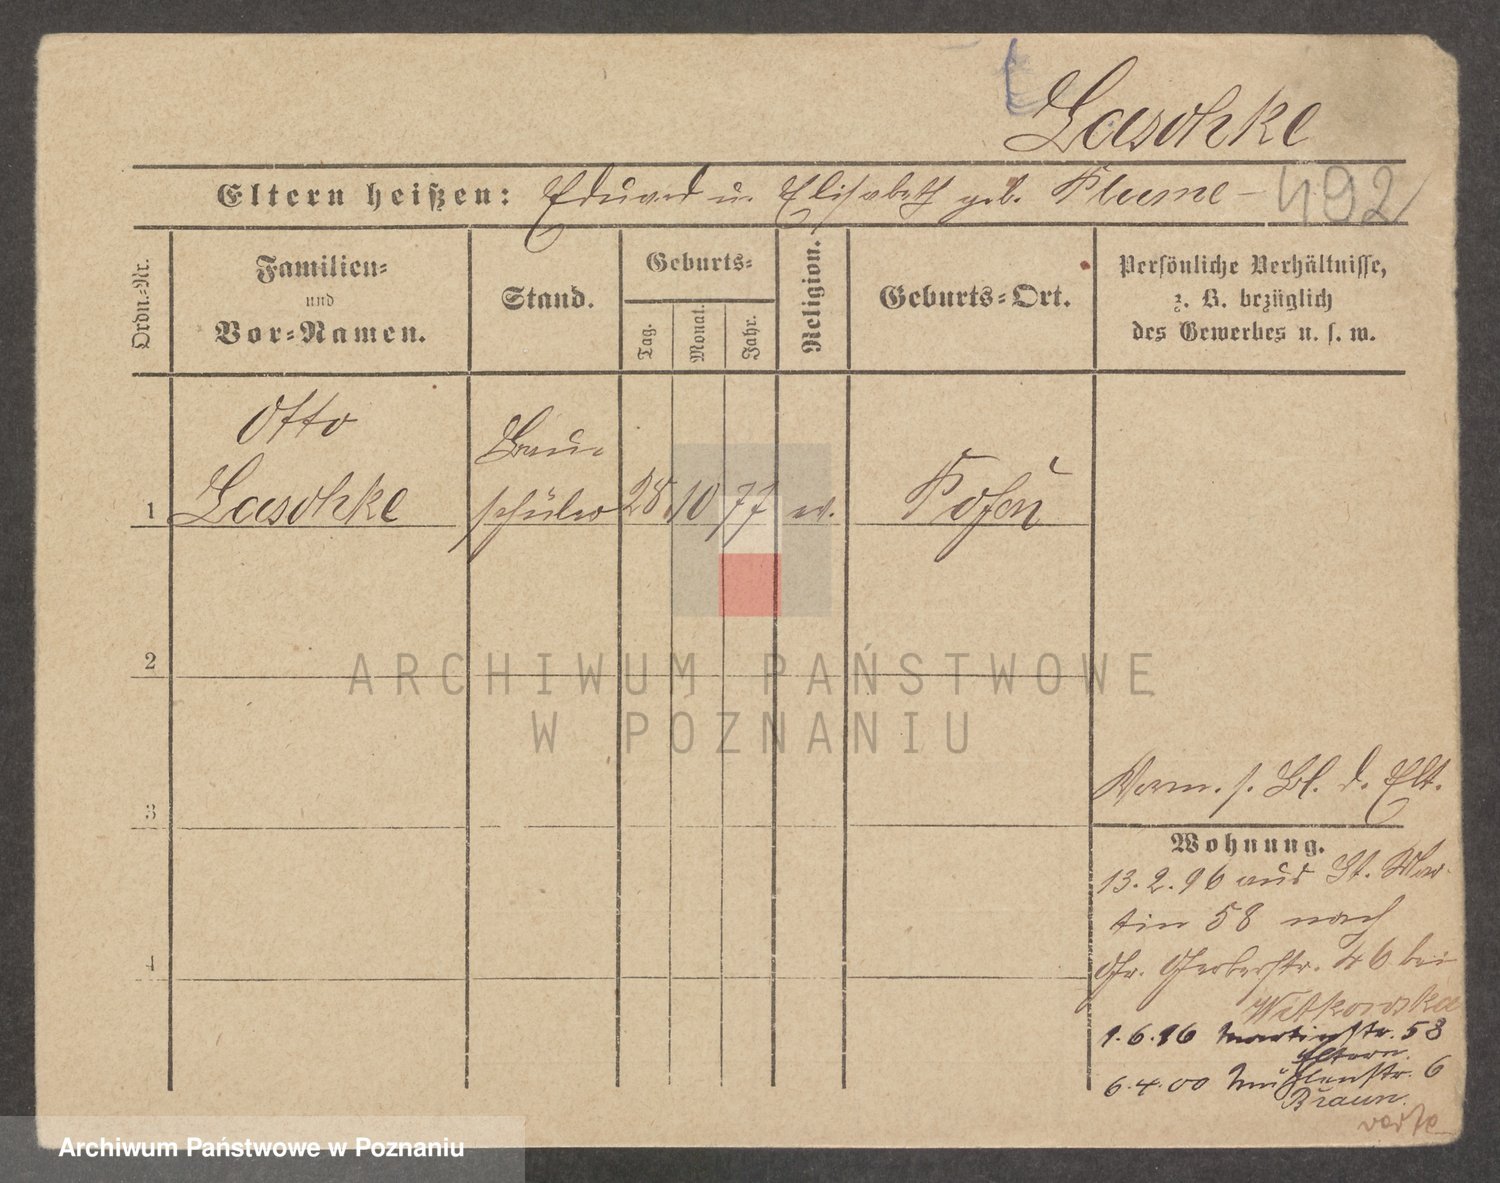 Laschke
Eltern heißen: Eduard u. Elisabeth geb. Plume - 492
Ordn.-Nr.
Familien-
und
Vor-Namen.
Stand.
Geburts-
Tag.
Monat.
Jahr.
Religion.
Geburts-Ort.
Persönliche Verhältnisse,
z. B. bezüglich
des Gewerbes u. s. w.
1
Otto
Laschke
Bau-
schüler
28 10 77 ev.
Posen
2
3
4
ARCHIWUM PAŃSTWOWE
W POZNANIU
Verm. s. Bl. d. Elt.
Wohnung.
13.2.96 aus St. Mar-
tin 58 nach
Gr. Gerberstr. 46 bei
Witkowska
1.6.96 Martinstr. 58
Eltern.
6.4.00 Mühlenstr. 6
Braun.
verte
Archiwum Państwowe w Poznaniu